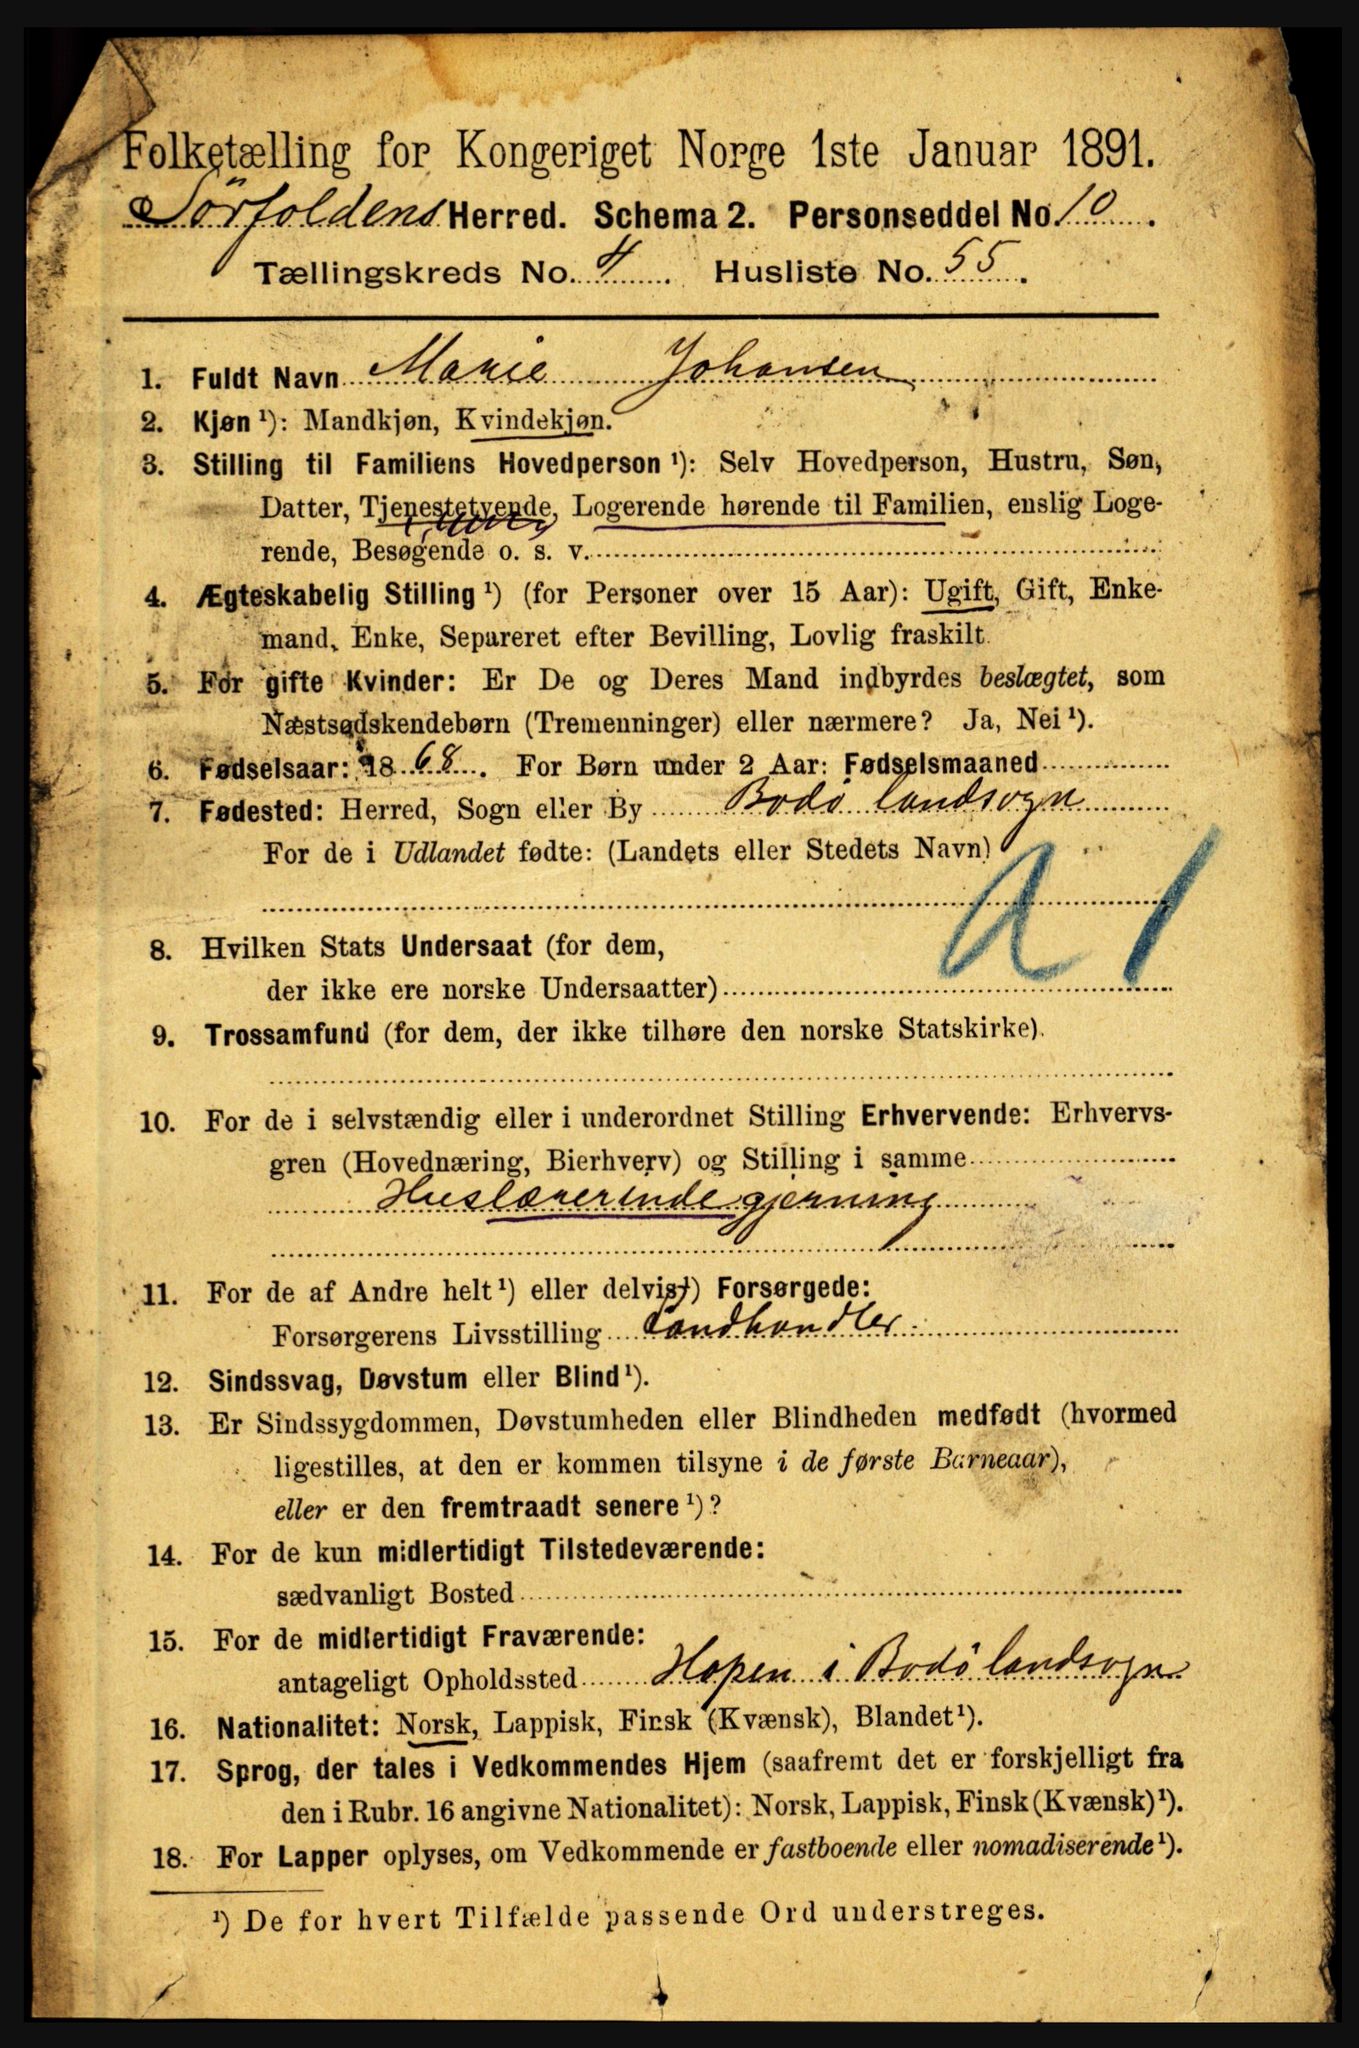 Folketælling for Kongeriget Norge 1ste Januar 1891.
Sörfoldens Herred. Schema 2. Personseddel No. 10.
Tællingskreds No. 4. Husliste No. 55.
1. Fuldt Navn Marie Johansen
2. Kjøn ¹): Mandkjøn, Kvindekjøn.
3. Stilling til Familiens Hovedperson ¹): Selv Hovedperson, Hustru, Søn,
Datter, Tjenestetyende, Logerende hørende til Familien, enslig Loge-
rende, Besøgende o. s. v.
4. Ægteskabelig Stilling ¹) (for Personer over 15 Aar): Ugift, Gift, Enke-
mand, Enke, Separeret efter Bevilling, Lovlig fraskilt.
5. For gifte Kvinder: Er De og Deres Mand indbyrdes beslægtet, som
Næstsødskendebørn (Tremenninger) eller nærmere? Ja, Nei ¹).
6. Fødselsaar: 1868. For Børn under 2 Aar: Fødselsmaaned
7. Fødested: Herred, Sogn eller By Bodö landsogn
For de i Udlandet fødte: (Landets eller Stedets Navn)
a 1
8. Hvilken Stats Undersaat (for dem,
der ikke ere norske Undersaatter)
9. Trossamfund (for dem, der ikke tilhøre den norske Statskirke).
10. For de i selvstændig eller i underordnet Stilling Erhvervende: Erhvervs-
gren (Hovednæring, Bierhverv) og Stilling i samme
Huslærerindegjerning
11. For de af Andre helt ¹) eller delvist ¹) Forsørgede:
Forsørgerens Livsstilling Landhandler.
12. Sindssvag, Døvstum eller Blind ¹).
13. Er Sindssygdommen, Døvstumheden eller Blindheden medfødt (hvormed
ligestilles, at den er kommen tilsyne i de første Barneaar),
eller er den fremtraadt senere ¹)?
14. For de kun midlertidigt Tilstedeværende:
sædvanligt Bosted
15. For de midlertidigt Fraværende:
antageligt Opholdssted Hopen i Bodö landsogn
16. Nationalitet: Norsk, Lappisk, Finsk (Kvænsk), Blandet ¹).
17. Sprog, der tales i Vedkommendes Hjem (saafremt det er forskjelligt fra
den i Rubr. 16 angivne Nationalitet): Norsk, Lappisk, Finsk (Kvænsk) ¹).
18. For Lapper oplyses, om Vedkommende er fastboende eller nomadiserende ¹).
¹) De for hvert Tilfælde passende Ord understreges.